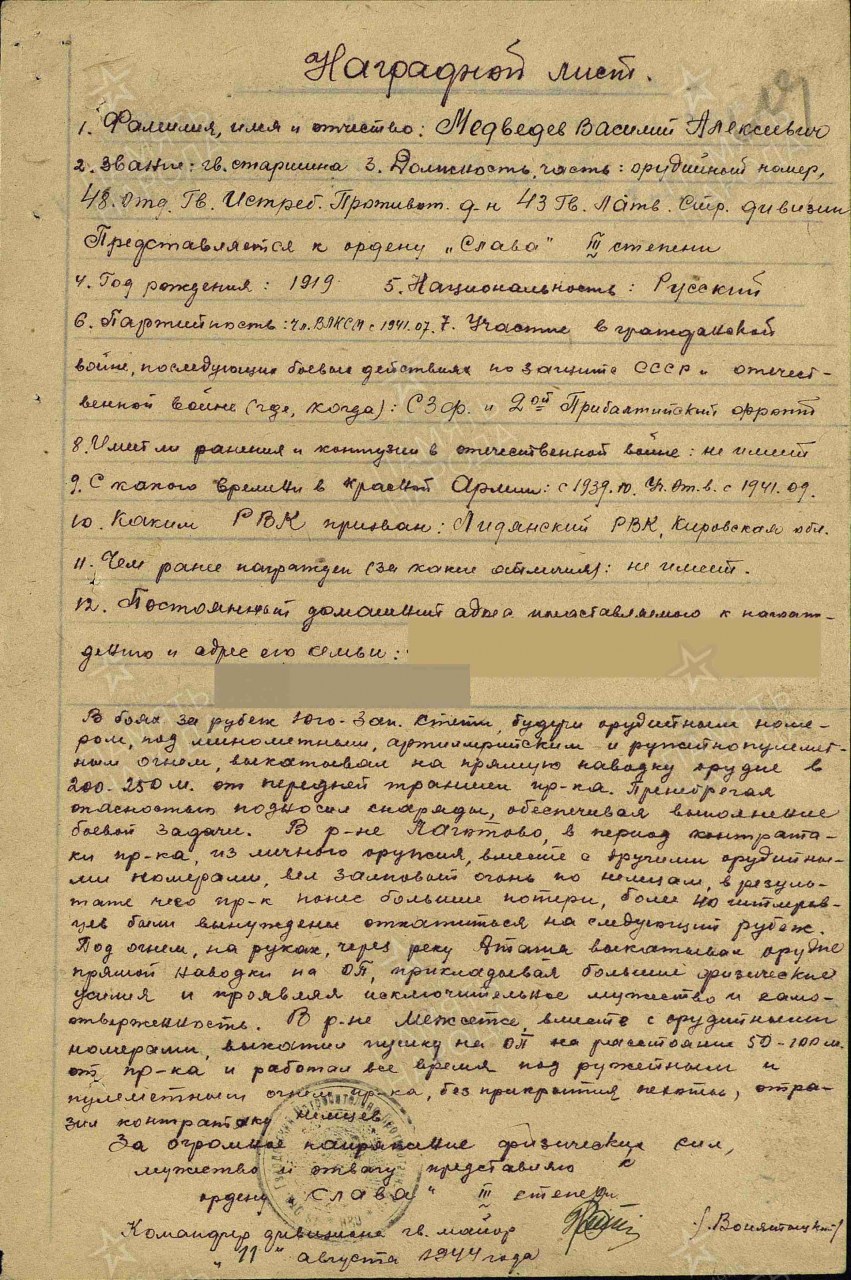 Наградной лист.
1. Фамилия, имя и отчество: Медведев Василий Алексеевич
2. Звание: гв. старшина 3. Должность, часть: орудийный номер,
48. Отд. Гв. Истреб. Противот. д-н 43 Гв. Латв. Стр. дивизии
Представляется к ордену "Слава" III степени
4. Год рождения: 1919 5. Национальность: Русский
6. Партийность: чл. ВЛКСМ с 1941.07. 7. Участие в гражданской
войне, последующих боевых действиях по защите СССР и отечест-
венной войне (где, когда): СЗФ. и 2ой Прибалтийский фронт
8. Имеет ли ранения и контузии в отечественной войне: не имеет
9. С какого времени в Красной Армии: с 1939. Уч. От. в. с 1941.09.
10. Каким РВК призван: РВК, Кировская обл.
11. Чем ранее награжден (за какие отличия): не имеет.
12. Постоянный домашний адрес представляемого к награж-
дению и адрес его семьи:
В боях за рубеж Юго-Зап. будучи орудийным номе-
ром, под минометным, артиллерийским и ружейнопулемет-
ным огнем, выкатывал на прямую наводку орудие в
200-250 м. от передней траншеи пр-ка. Пренебрегая
опасностью подносил снаряды, обеспечивая выполнение
боевой задачи. В р-не в период контрата-
ки пр-ка, из личного оружия, вместе с другими орудийны-
ми номерами, вел залповый огонь по немцам, в резуль-
тате чего пр-к понес большие потери, более 40 гитлеров-
цев были вынуждены откатиться на следующий рубеж.
Под огнем, на руках, через реку выкатывал орудие
прямой наводки на ОП, прикладывая большие физические
усилия и проявляя исключительное мужество и само-
отверженность. В р-не вместе с орудийными
номерами, выкатил пушку на ОП на расстояние 50-100 м.
от пр-ка и работал все время под ружейным и
пулеметным огнем пр-ка, без прикрытия пехоты, отра-
зил контратаку немцев.
За огромное напряжение физических сил,
мужество и отвагу представляю к
ордену "Слава" III степени
Командир дивизиона гв. майор
"11" августа 1944 года